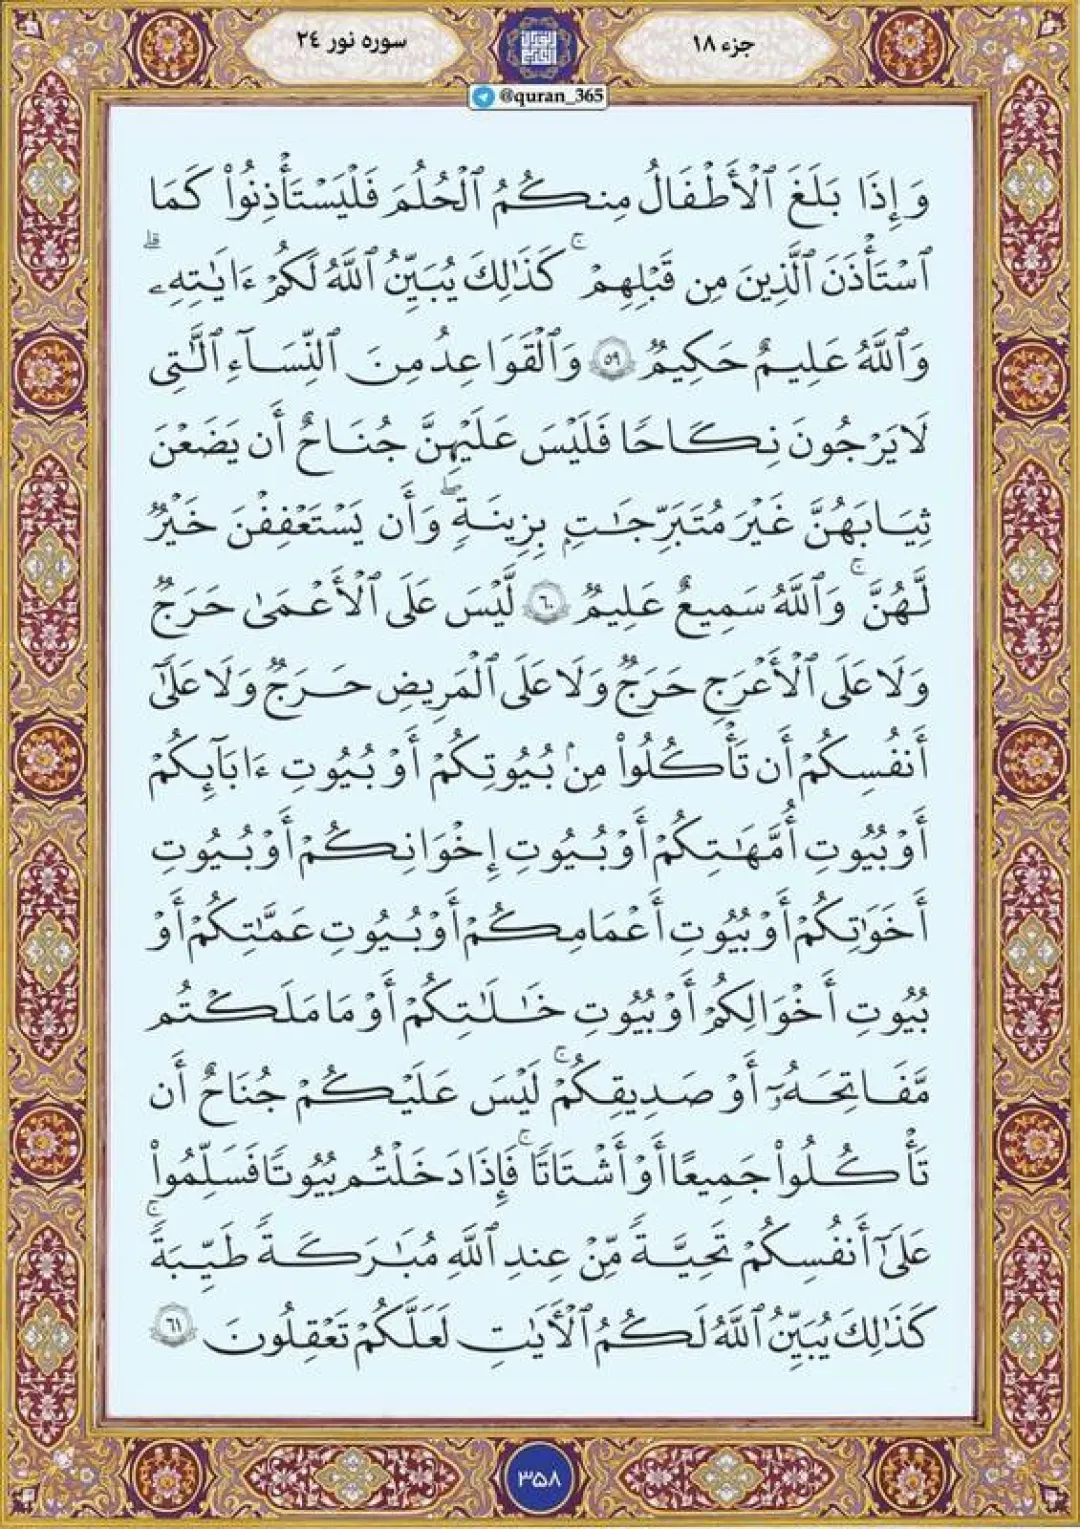 جزء ۱۸
سوره نور ۲۴
@quran_365
وَإِذَا بَلَغَ ٱلْأَطْفَٰلُ مِنكُمُ ٱلْحُلُمَ فَلْيَسْتَـْٔذِنُوا۟ كَمَا
ٱسْتَـْٔذَنَ ٱلَّذِينَ مِن قَبْلِهِمْ ۚ كَذَٰلِكَ يُبَيِّنُ ٱللَّهُ لَكُمْ ءَايَٰتِهِۦ ۗ
وَٱللَّهُ عَلِيمٌ حَكِيمٌ ٥٩ وَٱلْقَوَاعِدُ مِنَ ٱلنِّسَآءِ ٱلَّٰتِى
لَا يَرْجُونَ نِكَاحًا فَلَيْسَ عَلَيْهِنَّ جُنَاحٌ أَن يَضَعْنَ
ثِيَابَهُنَّ غَيْرَ مُتَبَرِّجَٰتٍۭ بِزِينَةٍ ۖ وَأَن يَسْتَعْفِفْنَ خَيْرٌ
لَّهُنَّ ۚ وَٱللَّهُ سَمِيعٌ عَلِيمٌ ٦٠ لَّيْسَ عَلَى ٱلْأَعْمَىٰ حَرَجٌ
وَلَا عَلَى ٱلْأَعْرَجِ حَرَجٌ وَلَا عَلَى ٱلْمَرِيضِ حَرَجٌ وَلَا عَلَىٰٓ
أَنفُسِكُمْ أَن تَأْكُلُوا۟ مِنۢ بُيُوتِكُمْ أَوْ بُيُوتِ ءَابَآئِكُمْ
أَوْ بُيُوتِ أُمَّهَٰتِكُمْ أَوْ بُيُوتِ إِخْوَانِكُمْ أَوْ بُيُوتِ
أَخَوَٰتِكُمْ أَوْ بُيُوتِ أَعْمَامِكُمْ أَوْ بُيُوتِ عَمَّٰتِكُمْ أَوْ
بُيُوتِ أَخْوَالِكُمْ أَوْ بُيُوتِ خَٰلَٰتِكُمْ أَوْ مَا مَلَكْتُم
مَّفَاتِحَهُۥٓ أَوْ صَدِيقِكُمْ ۚ لَيْسَ عَلَيْكُمْ جُنَاحٌ أَن
تَأْكُلُوا۟ جَمِيعًا أَوْ أَشْتَاتًا ۚ فَإِذَا دَخَلْتُم بُيُوتًا فَسَلِّمُوا۟
عَلَىٰٓ أَنفُسِكُمْ تَحِيَّةً مِّنْ عِندِ ٱللَّهِ مُبَٰرَكَةً طَيِّبَةً ۚ
كَذَٰلِكَ يُبَيِّنُ ٱللَّهُ لَكُمُ ٱلْأٓيَٰتِ لَعَلَّكُمْ تَعْقِلُونَ ٦١
۳۵۸